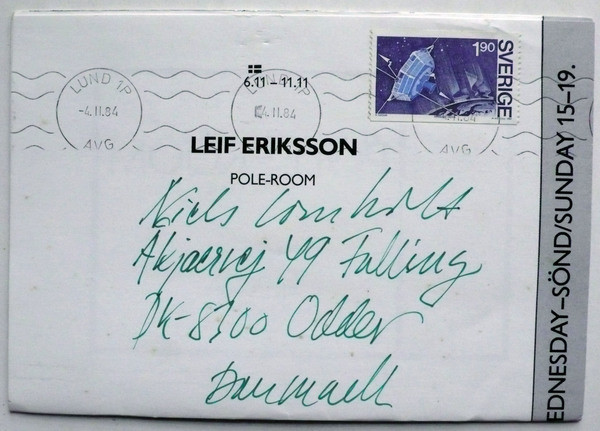 LUND 1P
-4.11.84
AVG
LUND 1P
-4.11.84
-4.11.84
AVG
1.90
SVERIGE
6.11 – 11.11
LEIF ERIKSSON
POLE-ROOM
Niels Lomholt
Akjaervej 49 Falling
DK-8300 Odder
Danmark
EDNESDAY–SÖND/SUNDAY 15–19.